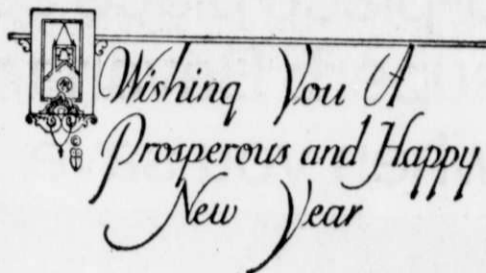 Wishing You A
Prosperous and Happy
New Year